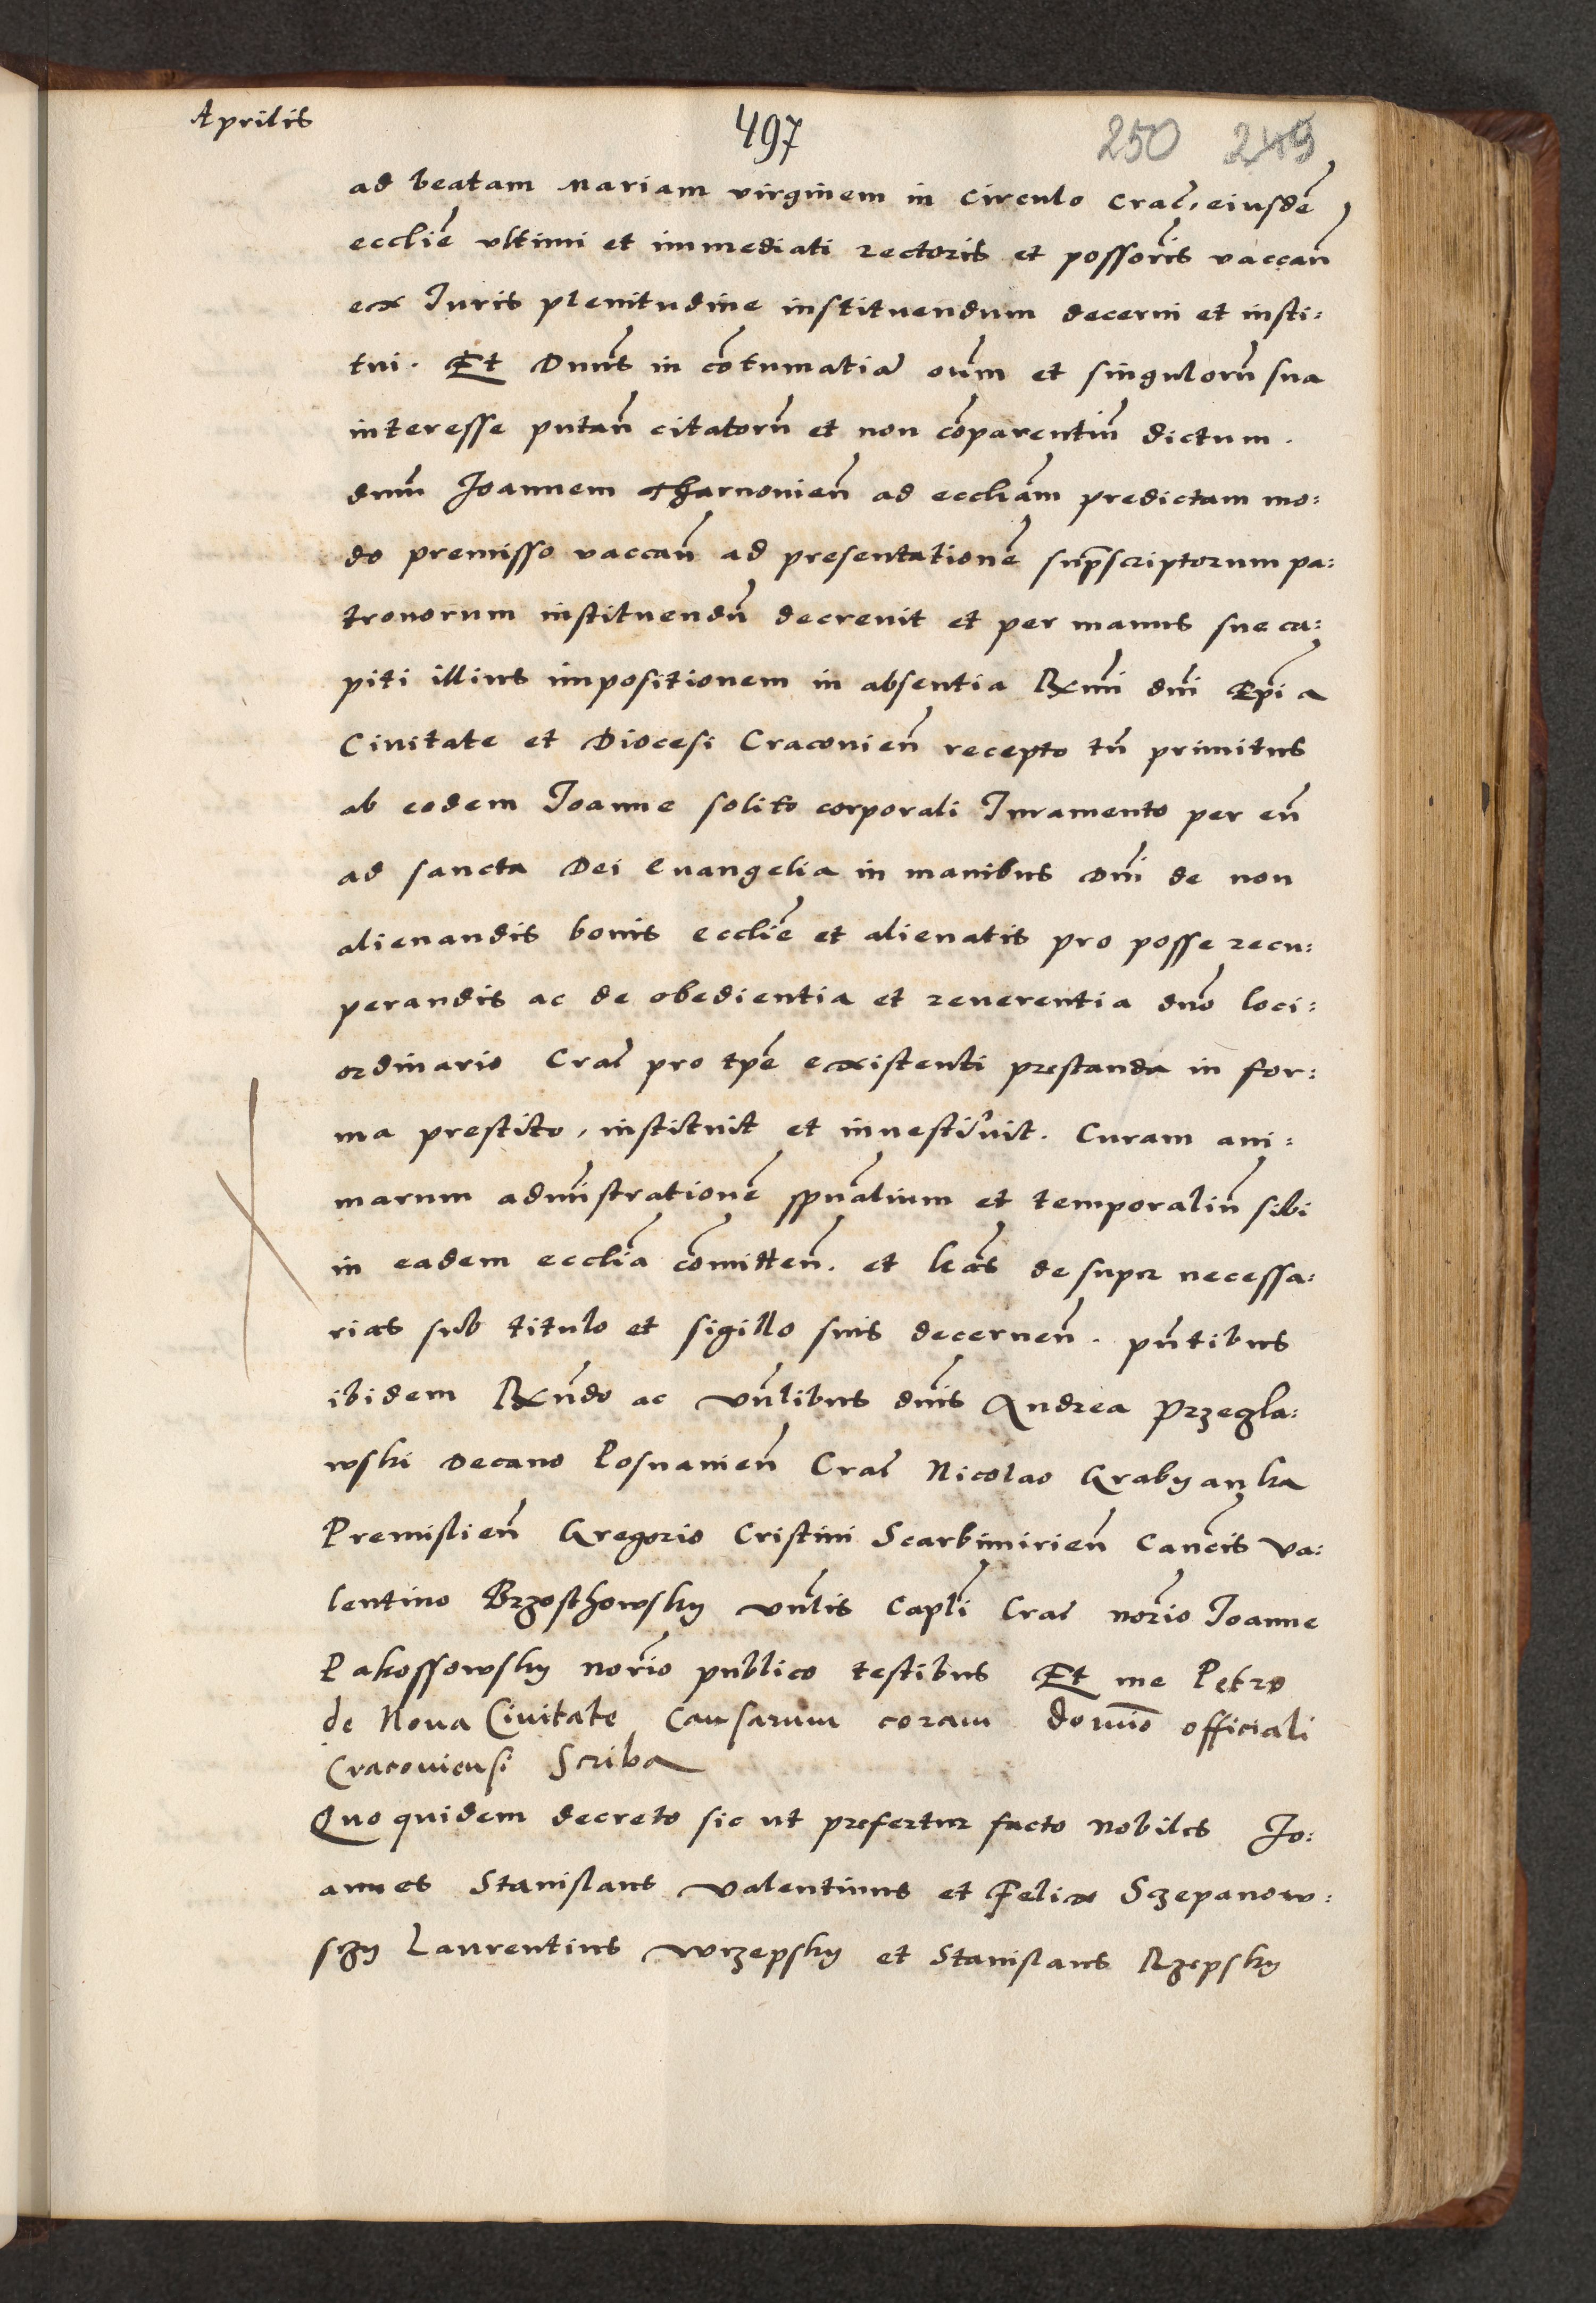 Aprilis
497
250 249
ad beatam Mariam virginem in Circulo Crac̃, eiusdẽ
eccliẽ vltimi et immediati rectoris et possoris̃ vaccañ
ex Iuris plenitudine instituendum decerni et insti:
tui. Et Dnus̃ in cõtumatiã oũm et singulorũ sua
interesse putañ citatorũ et non cõparentiũ dictum.
dnũm Joannem Tharnovieñ ad eccliãm predictam mo:
do premisso vaccañ ad presentationẽ suprãscriptorum pa:
tronorum instituendũ decrevit et per manus sue ca:
piti illius impositionem in absentia Rxm̃i dnĩ Epĩ a
Civitate et Diocesi Cracovieñ recepto tñ primitus
ab eodem Joanne solito corporali Iuramento per eũ
ad sancta Dei Evangelia in manibus Dnĩ de non
alienandis bonis eccliẽ et alienatis pro posse recu:
perandis ac de obedientia et reverentia dnõ loci:
ordinario Crac̃ pro tpẽ existenti prestanda in for:
ma prestito, instituit et investivit. Curam ani:
marum admĩstrationẽ spũalium et temporaliũ sibi
in eadem eccliã cõmitteñ. et lrãs de super necessa:
rias sub titulo et sigillo suis decerneñ. pñtibus
ibidem Rxñdo ac Vñlibus dnĩs Andrea Przegla:
wski Decano Posnanieñ Crac̃ Nicolao Grabyanka
Premislieñ Gregorio Cristini Scarbimirieñ Canõcis Va:
lentino Brzosthowsky Vñlis Caplĩ Crac̃ norĩo Joanne
Pakossowsky norĩo publico testibus Et me Petro
de Nova Civitate Causarum coram domĩo officiali
Cracoviensi Scriba
Quo quidem decreto sic ut prefertur facto Nobiles Jo:
annes Stanislaus Valentinus et Felix Sczepanow:
szy Laurentius Wrzepsky et Stanislaus Rzepsky